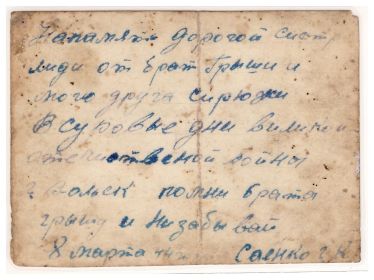 На память дорогой систр
люди от брат Грыши и
мого друга сирюжи
В суровые дни виликой
отечиственой войны
г Вольск помни брата
грышу и низабывай
8 марта Саенко Г К